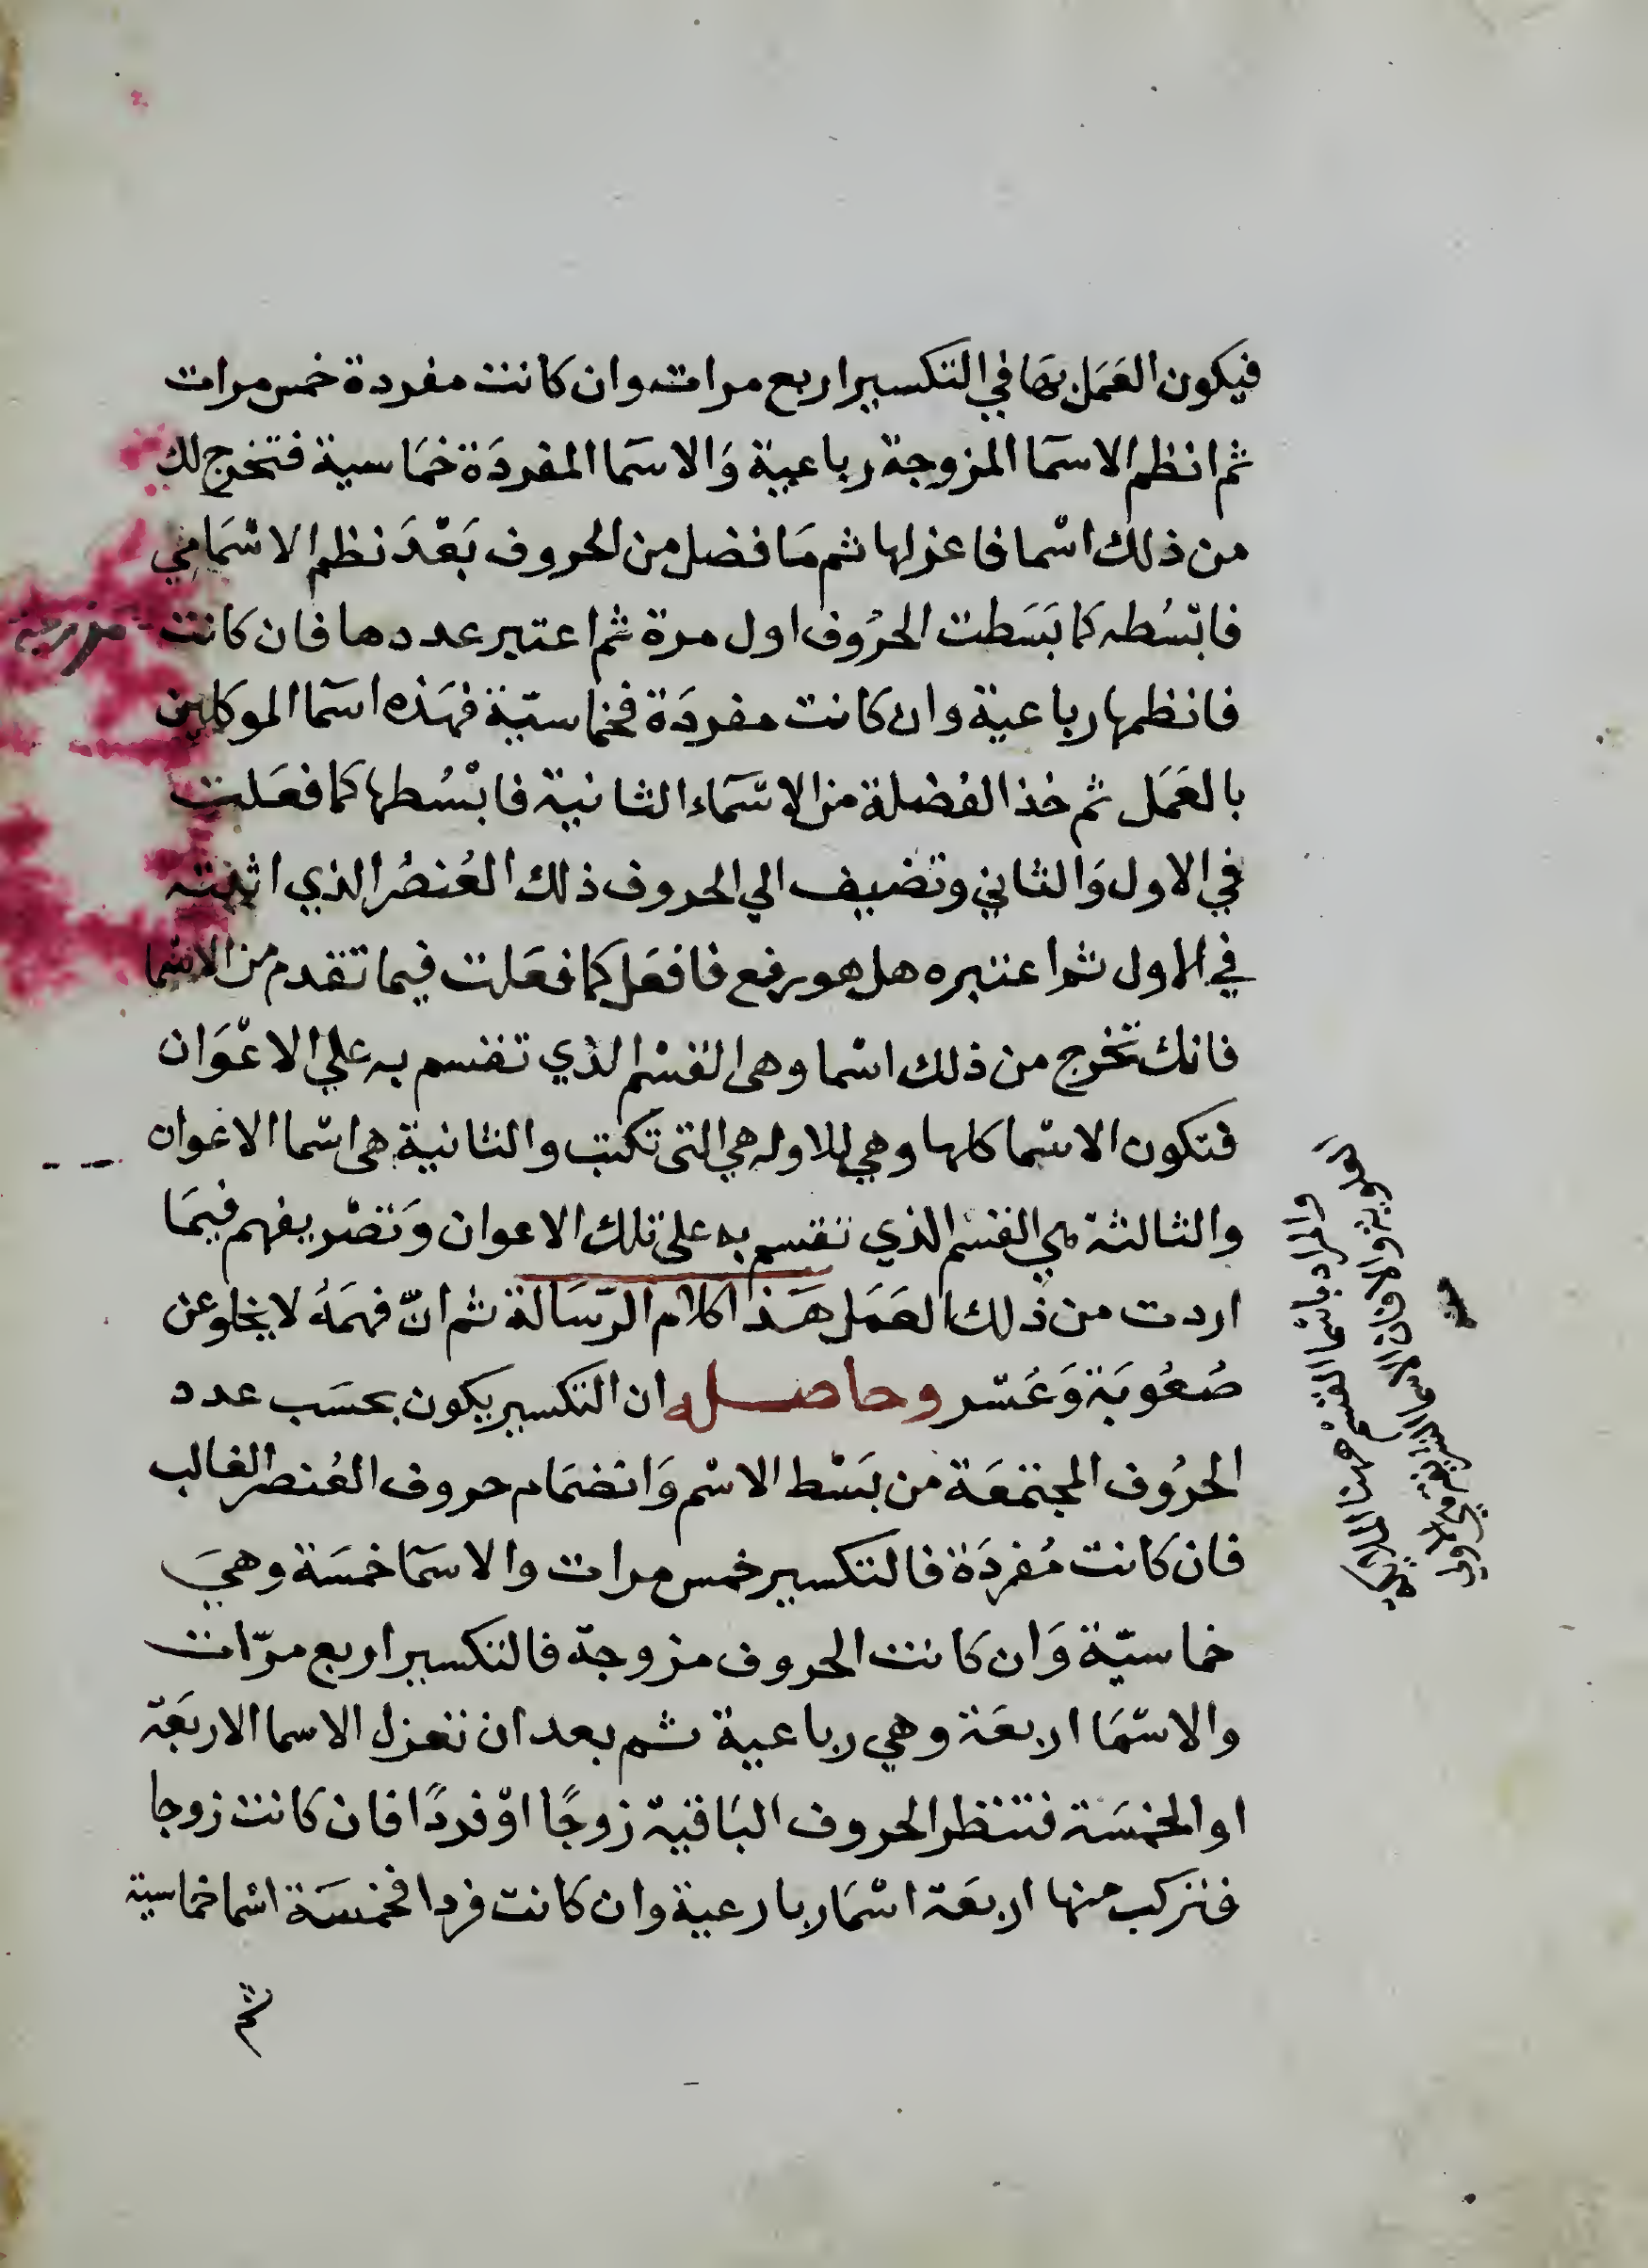 فيكون العَمَل بهَا في التكسير اربع مرات وان كانت مفردة خمس مرات
ثم انظم الاسمَا المزوجة رباعية وَالاسمَا المفردَة خمَاسية فتخرج لك
من ذلك اسْما فاعزلها ثم مَا فضل من الحروف بَعْدَ نظم الاسْمَا في
فابْسُطه كما بَسَطت الحرُوف اول مرة ثم اعتبر عددها فان كانت مزوجة
فانظمها رباعية وان كانت مفردَة فخماسيّة فهَذه اسما الموكلين
بالعَمَل ثم خذ الفضلة من الاسْمَاء الثانية فابْسُطها كما فعَلت
في الاول وَالثاني وتضيف الي الحروف ذلك العُنصُر الذي اثبته
في الاول ثم اعتبره هل هو رفع فافعَل كما فعَلت فيما تقدم من الاسْما
فانك تخرج من ذلك اسْما وهى القسْم الذي تقسم به علي الاعْوَان
فتكون الاسْما كلها وهي للاوله هي التى تكتب والثانية هى اسْما الاعوان
والثالثة هي القسْم الذي تقسم به على تلك الاعوان وَتصْريفهم فيمَا
اردت من ذلك العَمَل هَذا كلام الرّسَالة ثم انّ فهمَهُ لا يخلو عن
صُعُوبَة وَعُسْر وحاصله ان التكسير يكون بحسَب عدد
الحرُوف المجتمعَة من بَسْط الاسْم وَانضمَام حروف العُنصر الغالب
فان كانت مُفردَة فالتكسير خمس مرات والاسمَا خمسَة وهيَ
خماسيّة وَان كانت الحروف مزوجة فالتكسير اربع مرّات
والاسْمَا اربعَة وهي رباعية ثم بعد ان تعزل الاسما الاربَعَة
او الخمسَة فتنظر الحروف البَاقيَة زوجًا اوْ فردًا فان كانت زوجا
فتركب منها اربعَة اسْمَا ربارعية وان كانت فردا فخمسَة اسْما خماسية
ثم
والمراد باسْما القسم